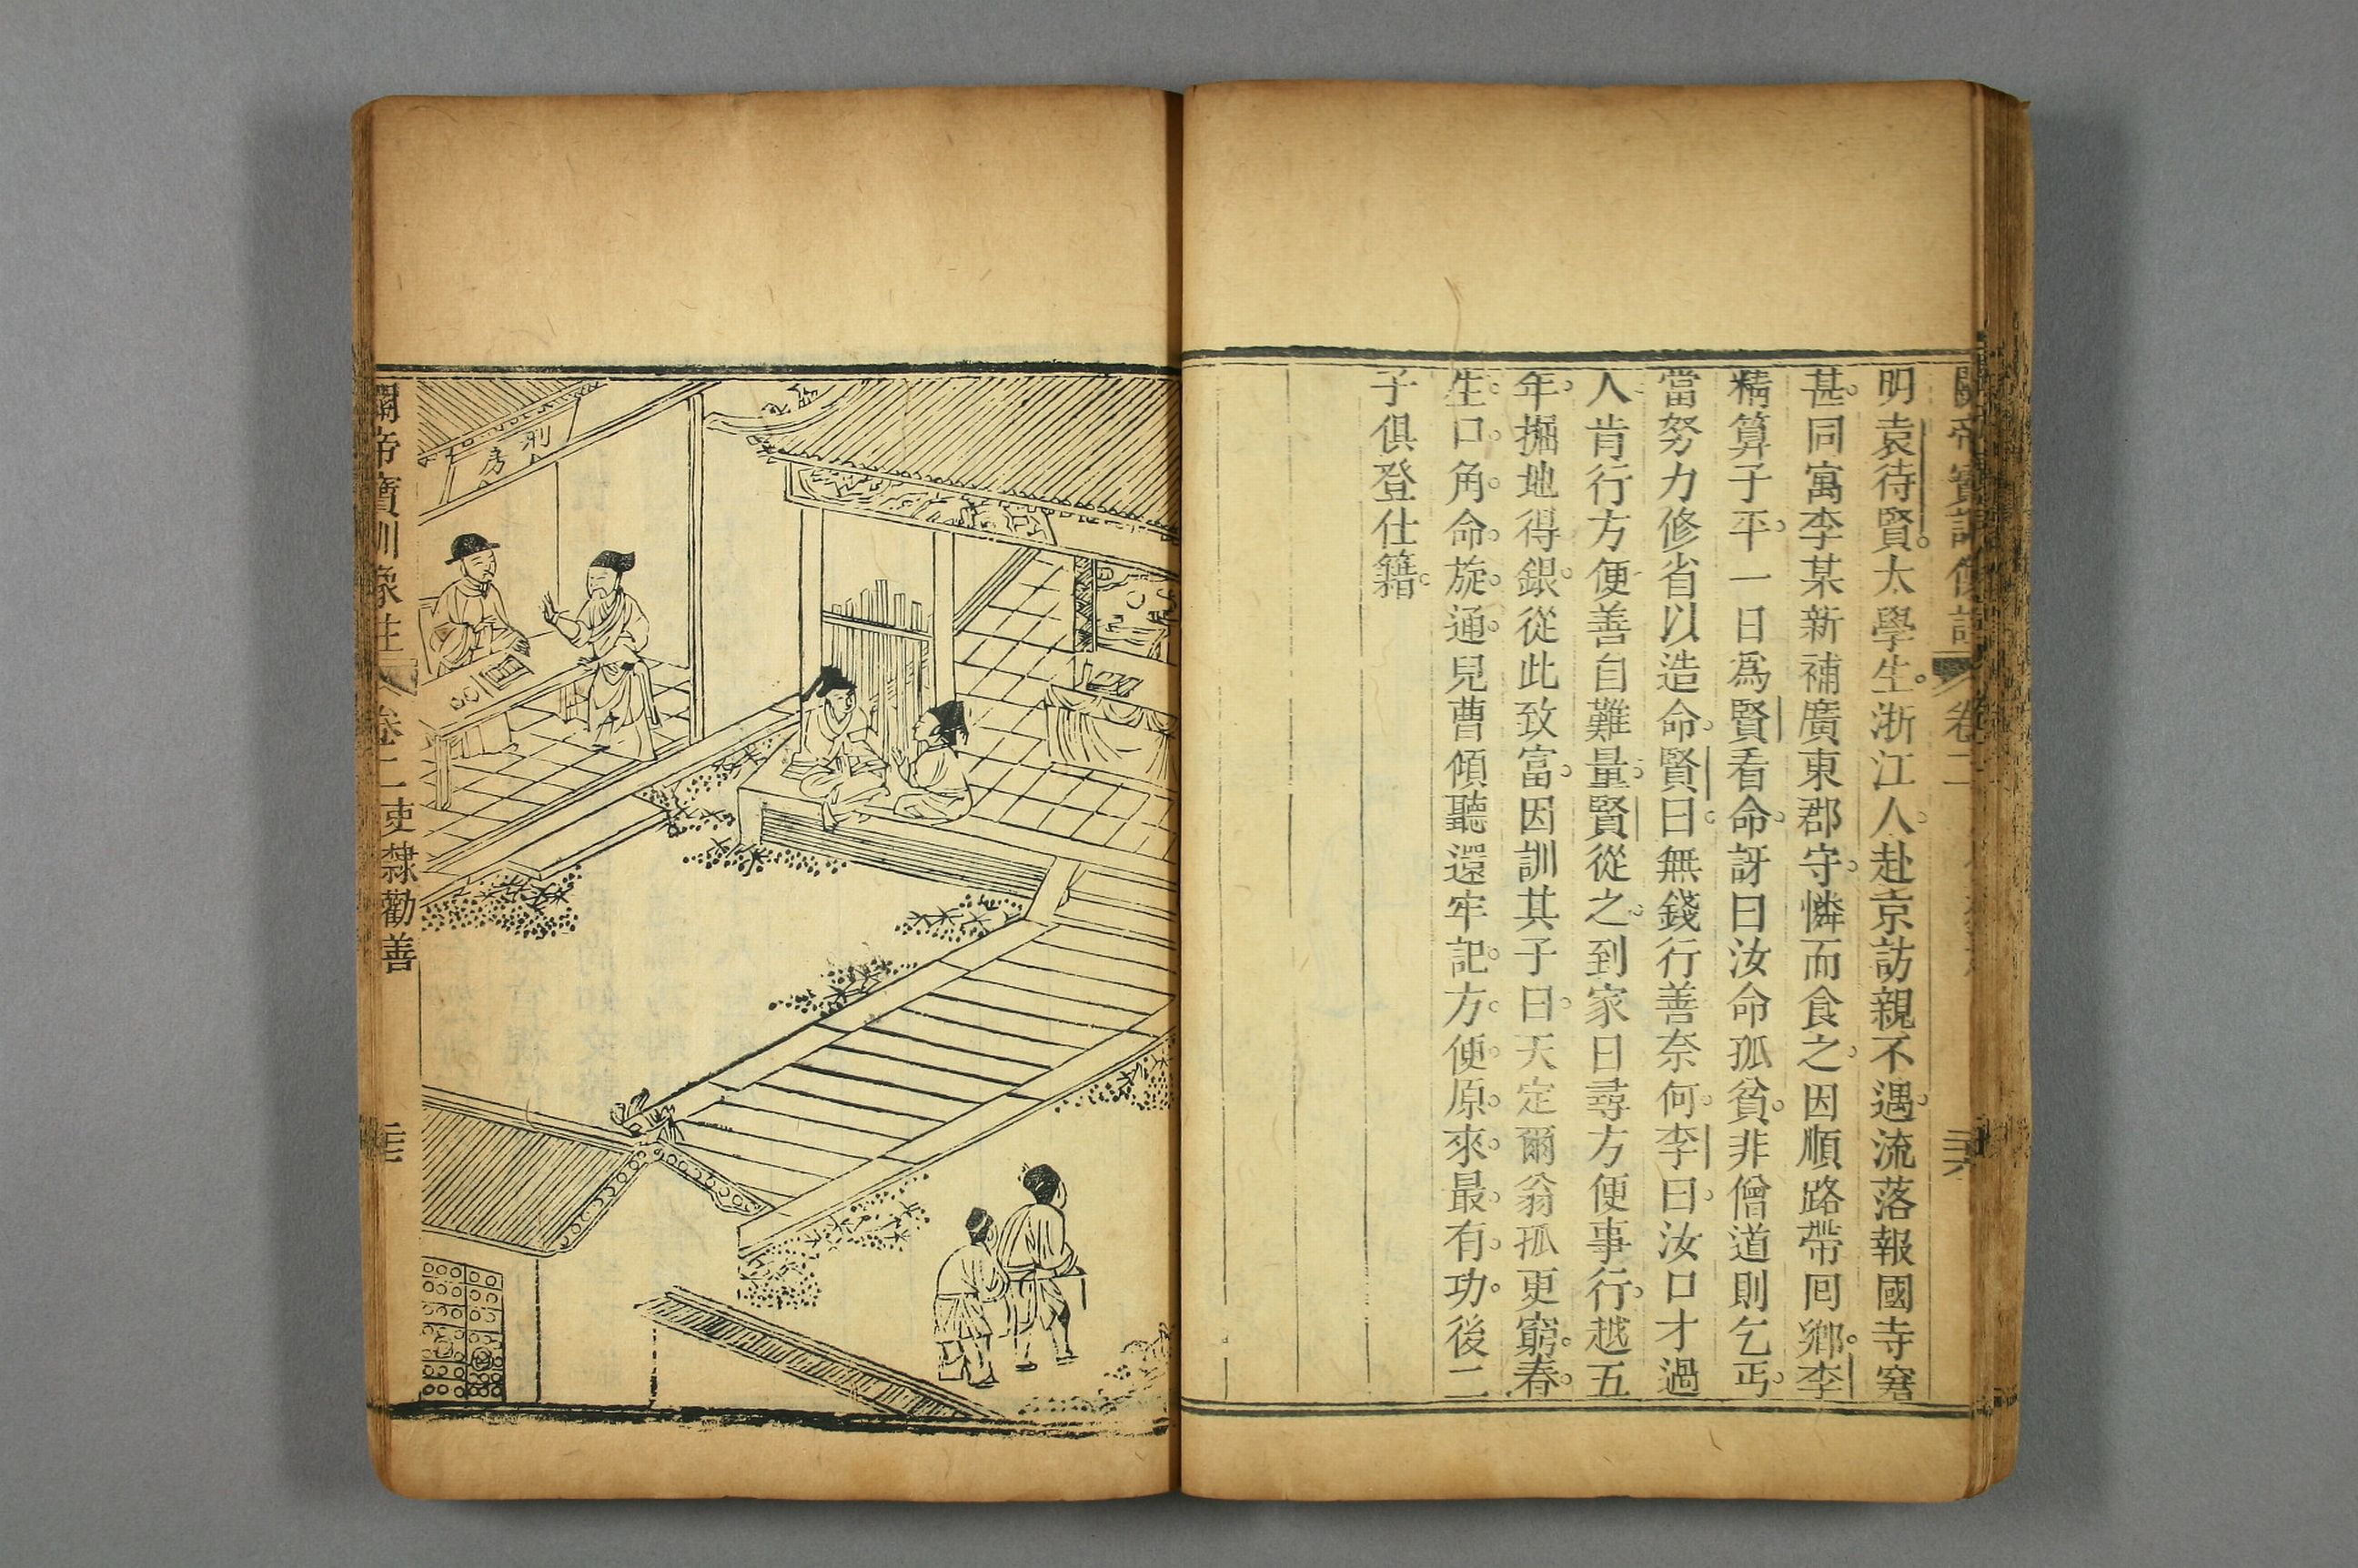 關帝寶訓像註 卷二
明袁待賢。太學生。浙江人。赴京訪親不遇。流落報國寺窘
甚。同寓李某新補廣東郡守。憐而食之。因順路帶回鄉。李
精算子平。一日爲賢看命。訝曰汝命孤貧。非僧道則乞丐。
當努力修省以造命。賢曰。無錢行善奈何。李曰。汝口才過
人。肯行方便善自難量。賢從之。到家日尋方便事行。越五
年。掘地得銀。從此致富。因訓其子曰。天定爾翁孤更窮。春。
生。口。角。命。旋。通。兒曹傾聽還牢記。方。便。原。來。最。有。功。後二
子俱登仕籍。
刑房
關帝寶訓像註 卷二 吏隸勸善